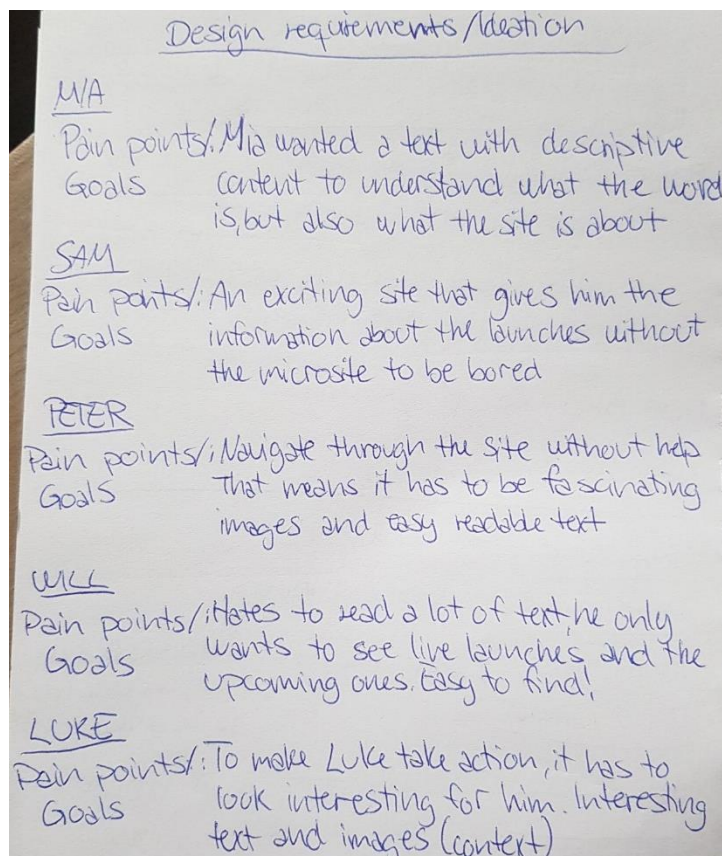 Design requirements/Ideation
MIA
Pain points/: Mia wanted a text with descriptive
Goals content to understand what the word
is, but also what the site is about
SAM
Pain points/: An exciting site that gives him the
Goals information about the launches without
the microsite to be bored
PETER
Pain points/: Navigate through the site without help
Goals That means it has to be fascinating
images and easy readable text
WILL
Pain points/: Hates to read a lot of text, he only
Goals wants to see live launches and the
upcoming ones. Easy to find!
LUKE
Pain points/: To make Luke take action, it has to
Goals look interesting for him. Interesting
text and images (context)